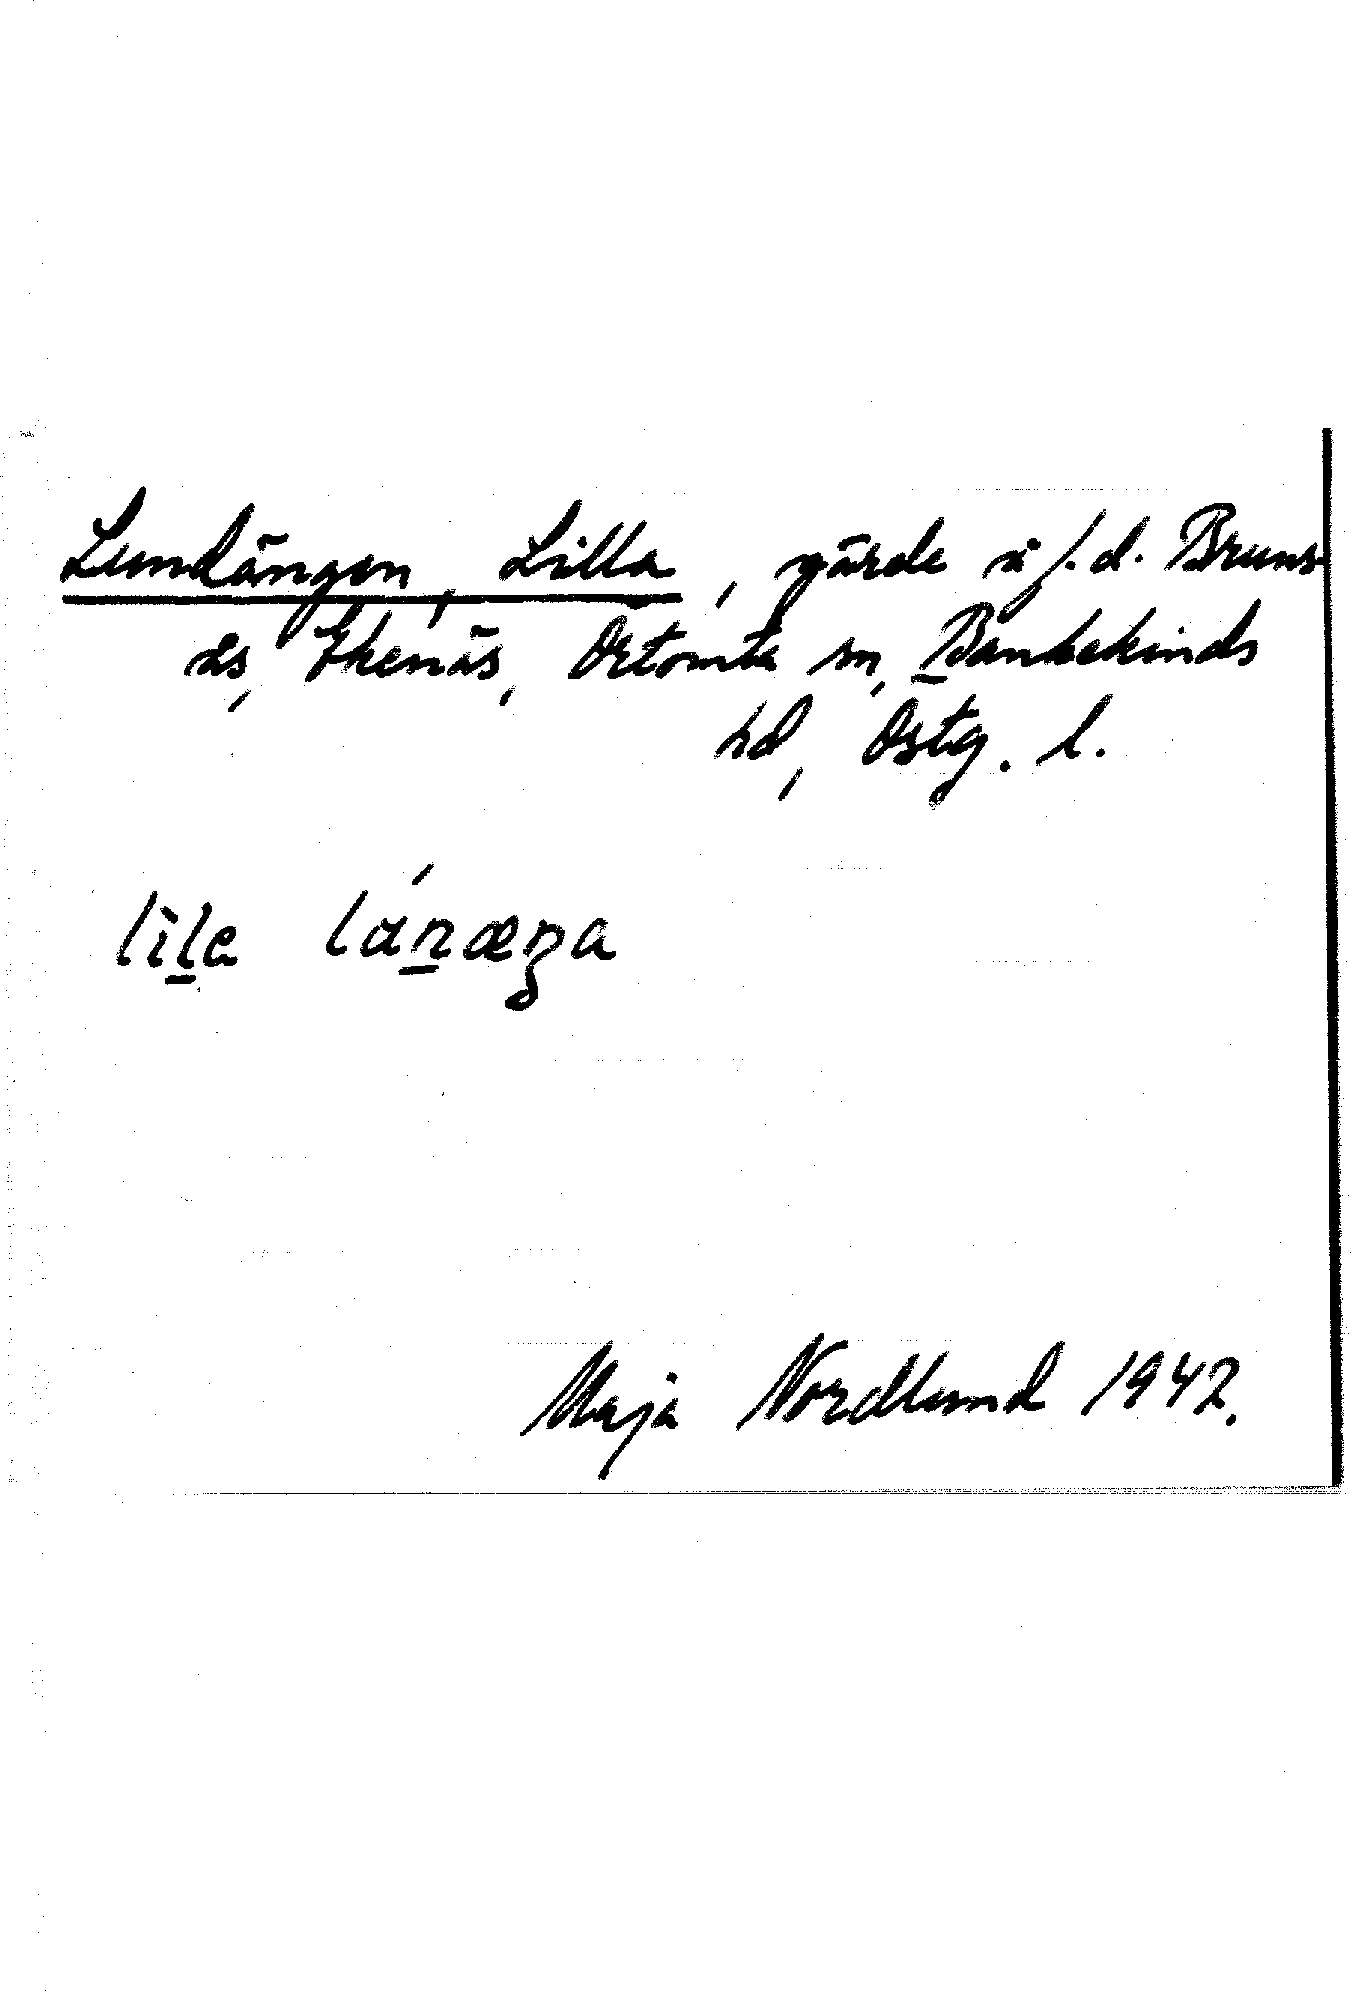 Lundängen, Lilla, gärde i f.d. Bruns-
ås, Ekenäs, Örtomta sn, Bankekinds
hd, Östg. l.
lil̲e lán̲æŋa
Maja Nordlund 1942.